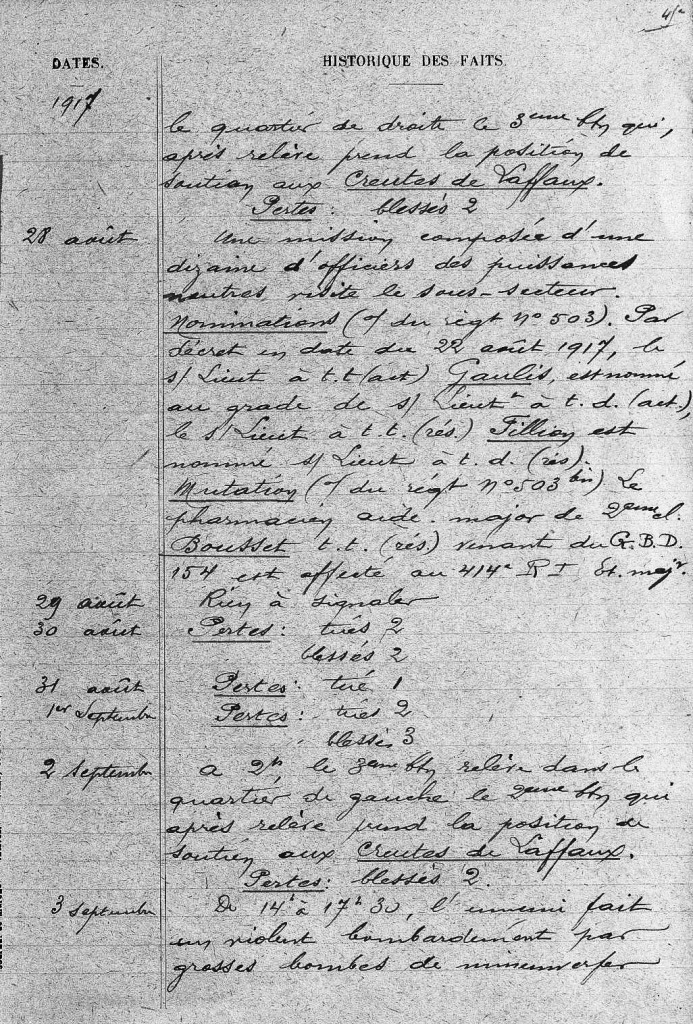 DATES.
HISTORIQUE DES FAITS.
1917
le quartier de droite le 3eme btn qui,
après relève prend la position de
soutien aux Creutes de Laffaux.
Pertes : blessés 2
28 août Une mission composée d'une
dizaine d'officiers des puissances
neutres visite le sous-secteur.
Nominations (O/ du régt N° 503). Par
décret en date du 22 août 1917, le
s/ Lieut à t.t (act) Gaulis, est nommé
au grade de s/ Lieutt à t. d. (act.)
le s/ Lieut à t. t. (rés.) Fillion est
nommé s/ Lieut à t. d. (rés).
Mutation (O/ du régt N° 503 bis) Le
pharmacien aide-major de 2eme cl.
Bousset t.t. (rés.) venant du G.B.D.
154 est affecté au 414e R I Et. majr.
29 août Rien à signaler
30 août Pertes : tués 2
blessés 2
31 août Pertes : tué 1
1er Septembre Pertes : tués 2
blessés 3
2 Septembre a 2h, le 3eme btn relève dans le
quartier de gauche le 2eme btn qui
après relève prend la position de
soutien aux Creutes de Laffaux.
Pertes : blessés 2.
3 septembre De 14h à 17h 30, l'ennemi fait
un violent bombardement par
grosses bombes de minenwerfer